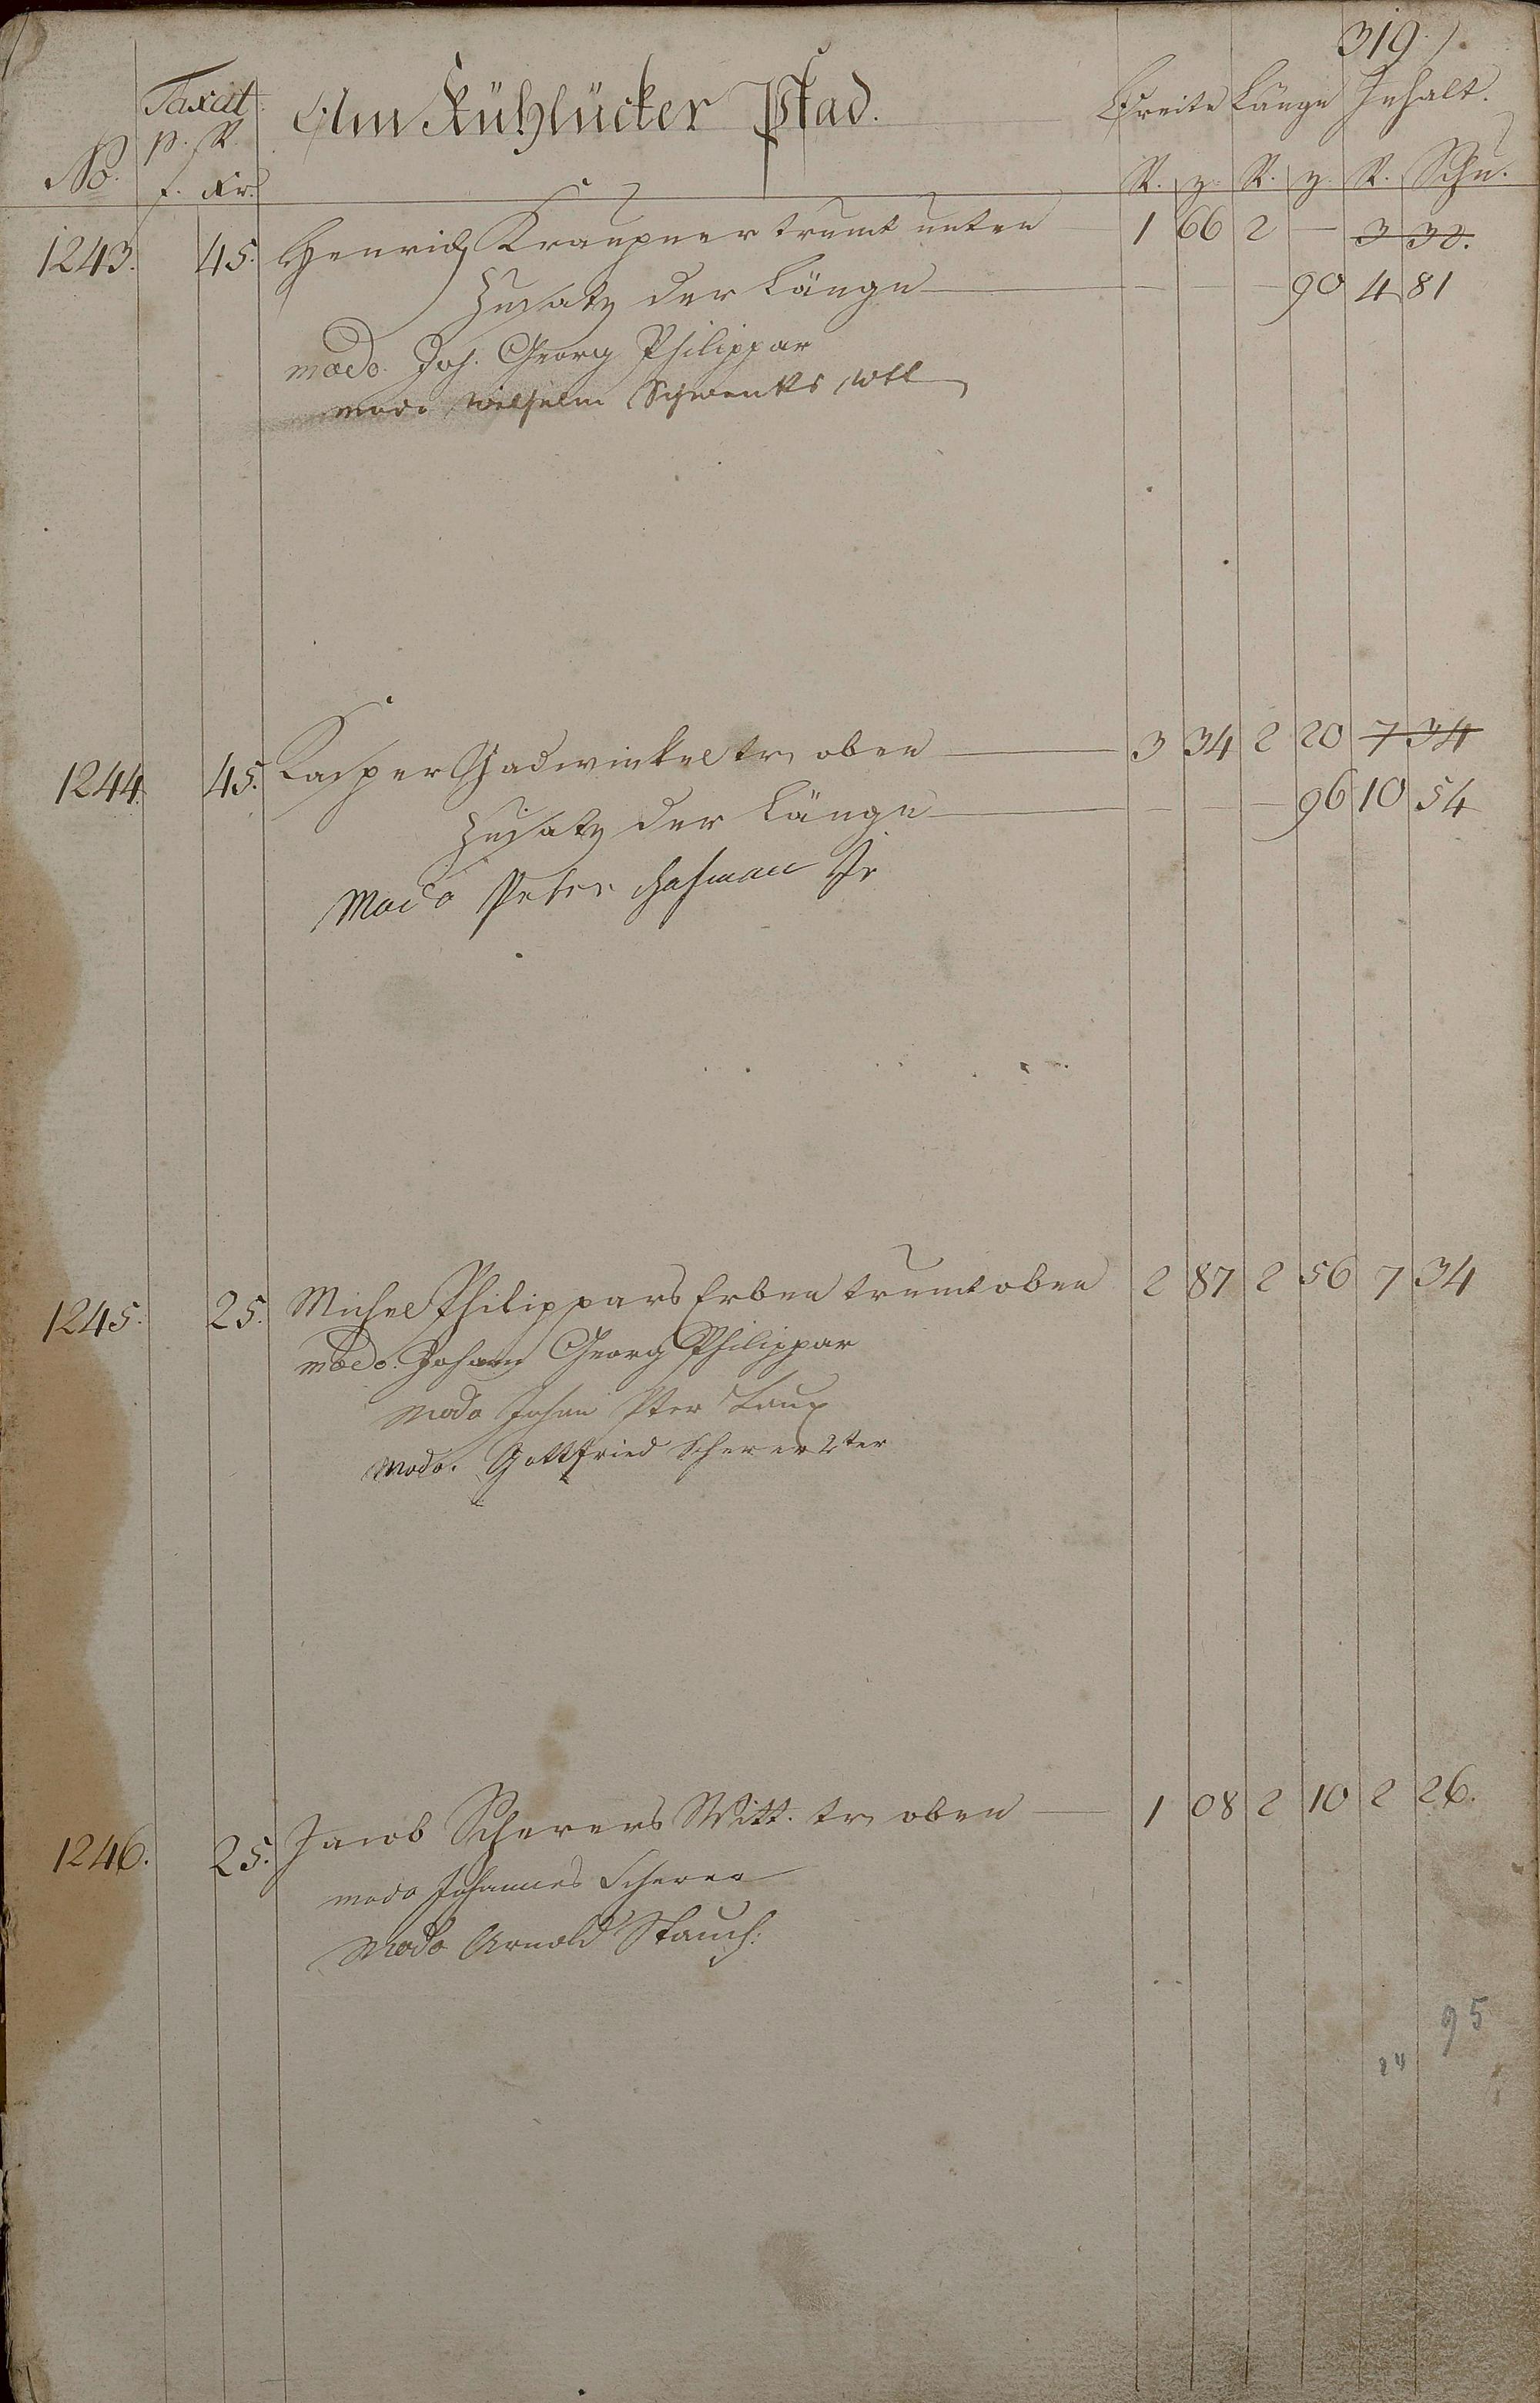 319.
Taxat. Am Kühlücker Pfad. Breite Länge Inhalt.
p. R.
No. f. Kr. R. z. R. z. R. Schu.
1243. 45. Henrich Kraupner trumt unten 1 66 2 — 3 32.
Zusatz der Länge — — — 90 4 81
modo. Joh. Georg Philippar
modo Wilhelm Schwenks Wtl
1244. 45. Kasper Gadwinkel tr. oben 3 34 2 20 7 34
Zusatz der Länge — — — 96 10 54
Modo Peter Hasman Jr
1245. 25. Michel Philippars Erben trumt oben 2 87 2 56 7 34
modo. Johann Georg Philippar
Modo Johan Pter Laux
Modo. Gottfried Scherer 2ter
1246. 25. Jacob Scherers Witt. tr. oben 1 08 2 10 2 26.
modo Johannes Scherer
Modo Arnold Stauch:
95
24